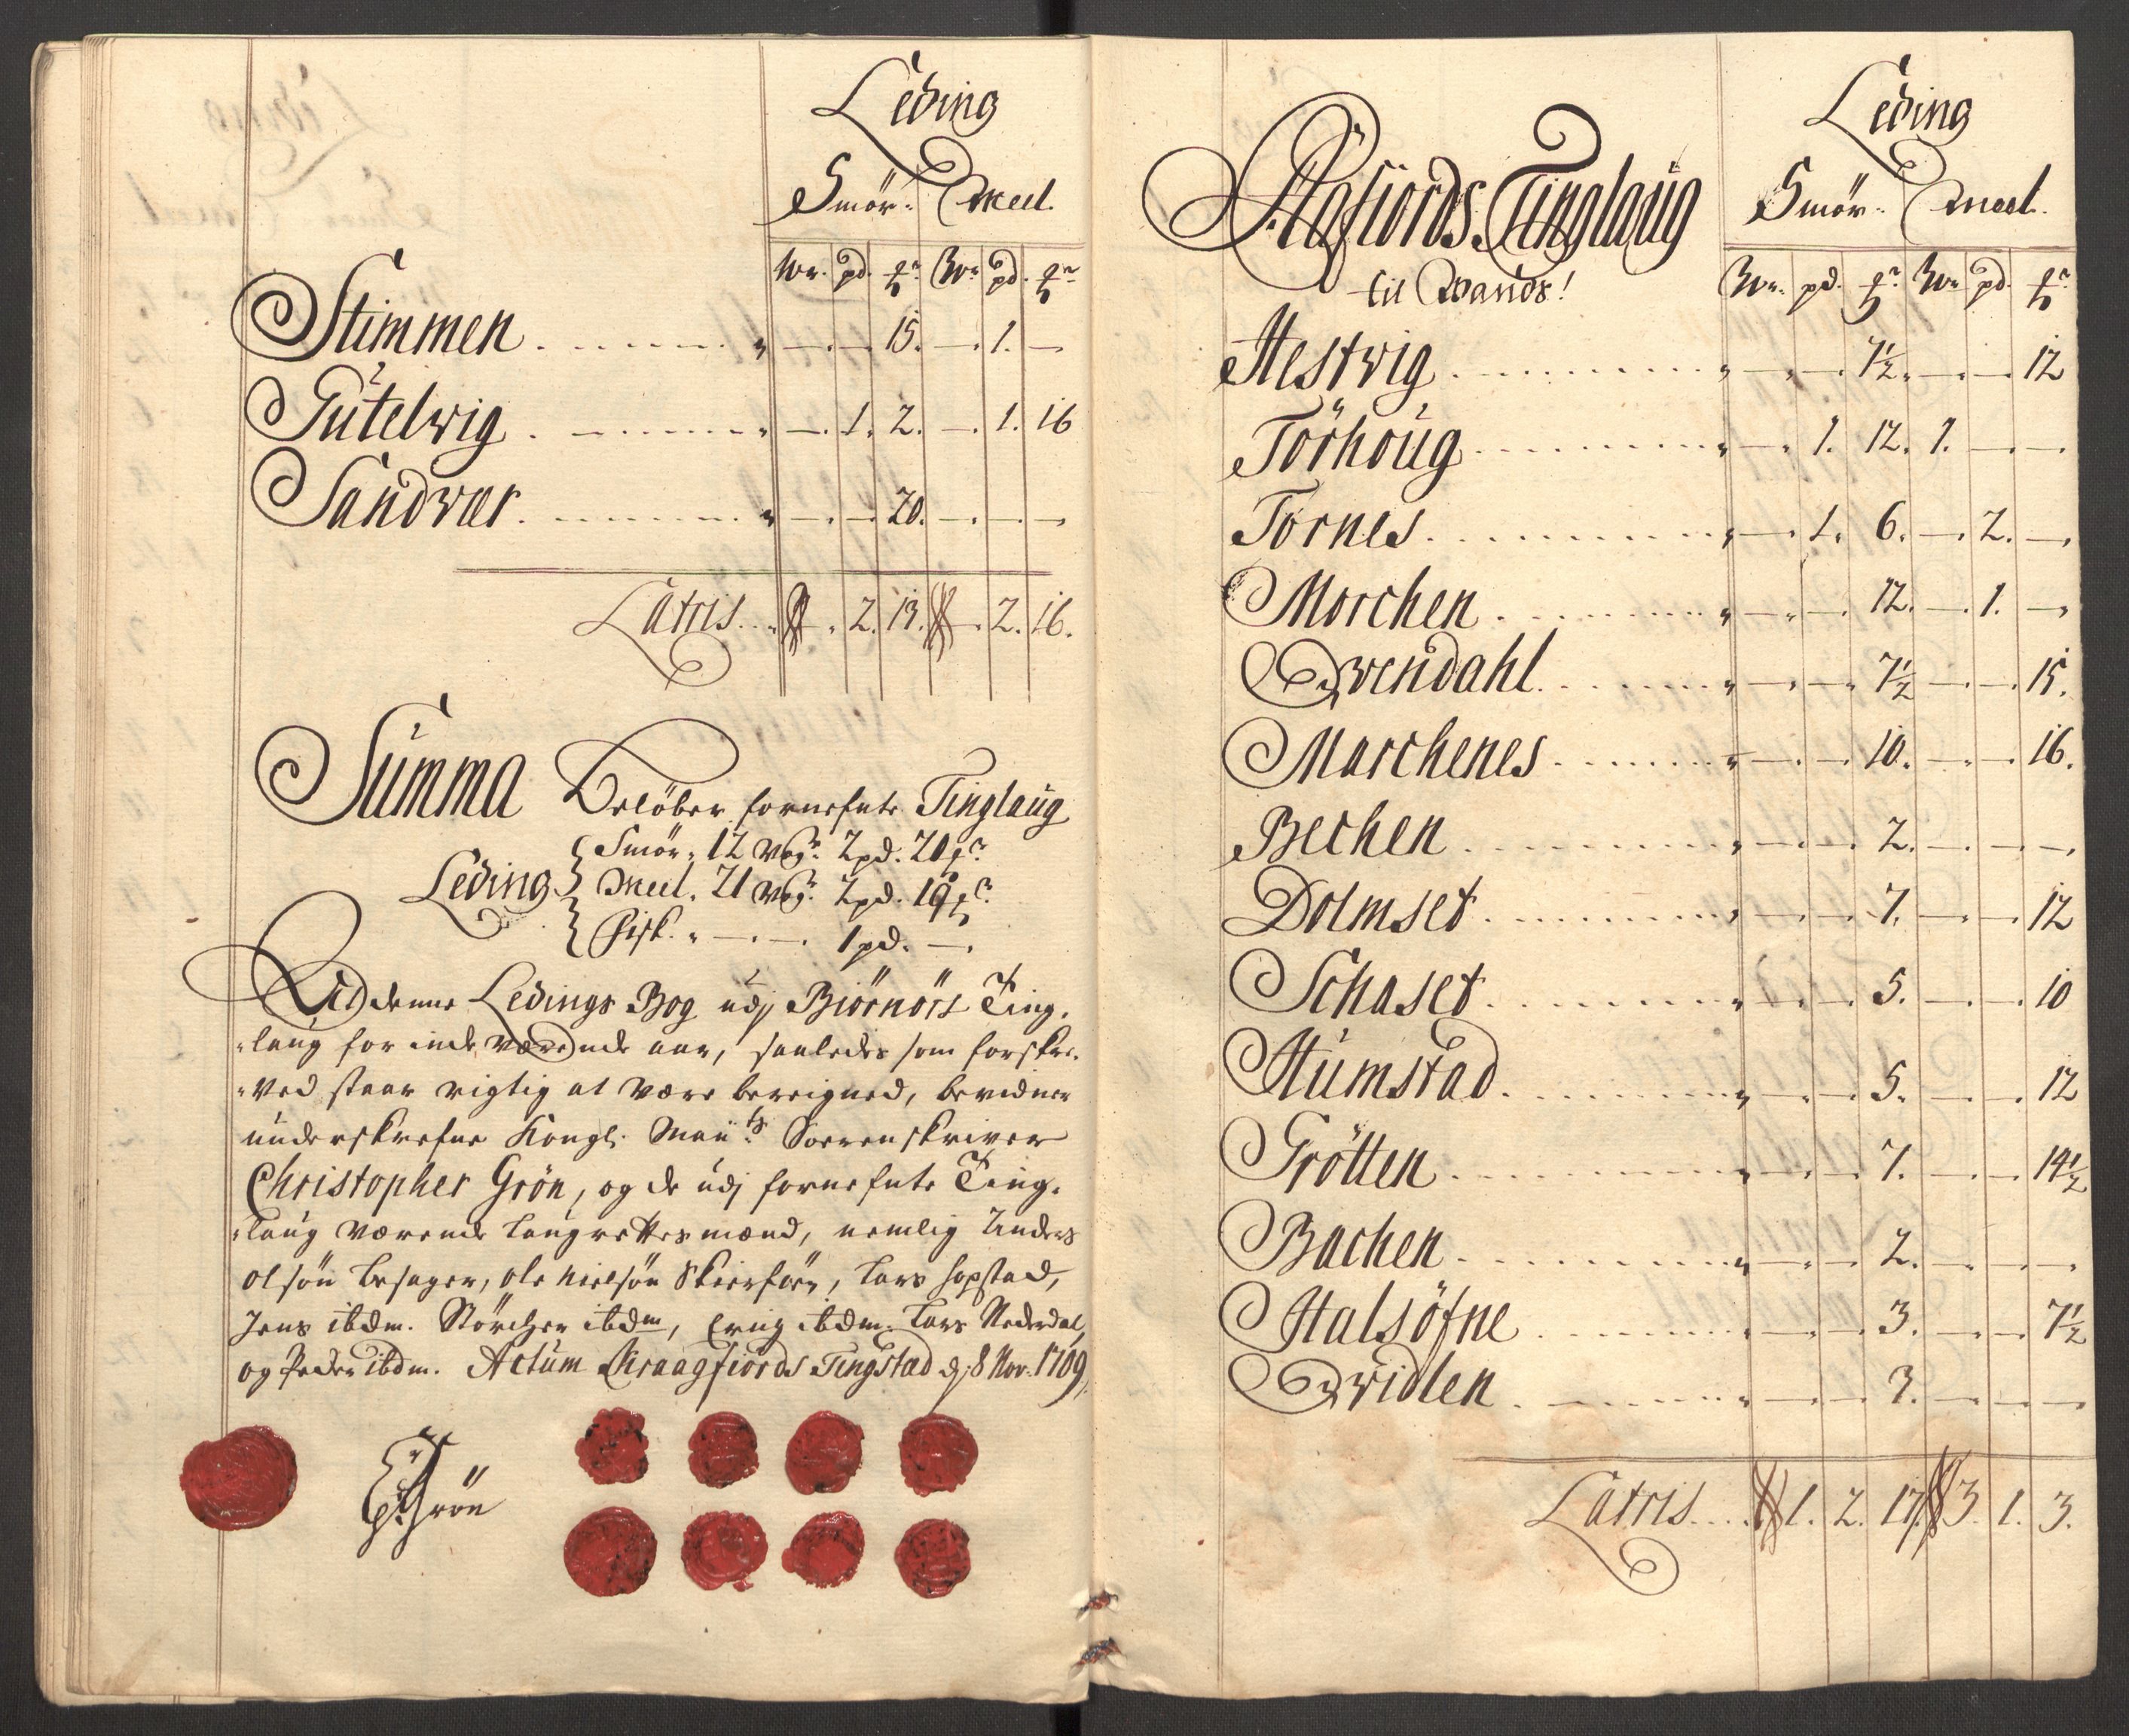 Leding
Smör. Meel.
W. pd. ℔r W. pd. ℔r
Stimmen . . . . . . . „ — . — . 15. — . 1. —
Gutelwig . . . . . . . „ — . 1. 2. — . 1. 16
Sandvær . . . . . . . „ — . — . 20. — . — . —
Latris . . . 2. 13. . 2. 16.
Summa Beløber fornefnte Tinglaug
Leding Smör. 12 Wg. 2 pd. 20 ℔r
Meel. 21 Wg. 2 pd. 19 ℔r
Fisk. „ — . — . 1 pd. — .
At denne Ledings Bog udj Biörnörs Ting-
laug for inde værende aar, saaledes som forskre-
ved staar rigtig at være beregned, bevidner
underskrefne Kongl. May.ts Sorrenskriver
Christopher Grön, og de udj fornefnte Ting-
laug værende Laugrettesmænd, nemlig Anders
olsön Besager, ole Nielsön , Lars Hopstad,
Jens ibdm. Störcher ibdm, Erig ibdm. Lars Nederdal,
og Peder ibdm. Actum Kraagfiords Tingstad d. 8 Nov. 1709,
Grön
Leding
Aafiords Tinglaug Smör. Meel.
til Vands!
W. pd. ℔r W. pd. ℔r
Hestvig . . . . . . . „ — . — . 7½. — . — . 12
Törhoug . . . . . . . „ — . 1. 12. 1. — . — .
Tornes . . . . . . . „ — . 1. 6. — . 2. —
Morchen . . . . . . . „ — . — . 12. — . 1. —
Qvendahl . . . . . . . „ — . — . 7½ — . — . 15.
Marchenes . . . . . . . „ — . — . 10. — . — . 16.
Bechen . . . . . . . „ — . — . 2. — . — . — .
Dolmset . . . . . . . „ — . — . 7. — . — . 12
Schaset . . . . . . . „ — . — . 5. — . — . 10
Humstad . . . . . . . „ — . — . 5. — . — . 12
Grötten . . . . . . . „ — . — . 7. — . — . 14½
Bachen . . . . . . . „ — . — . 2. — . — . — .
Halsöfne . . . . . . . „ — . — . 3. — . — . 7½
Qvidlen . . . . . . . „ — . — . 3. — . — . — .
Latris . . . 1. 2. 17. 3. 1. 3.